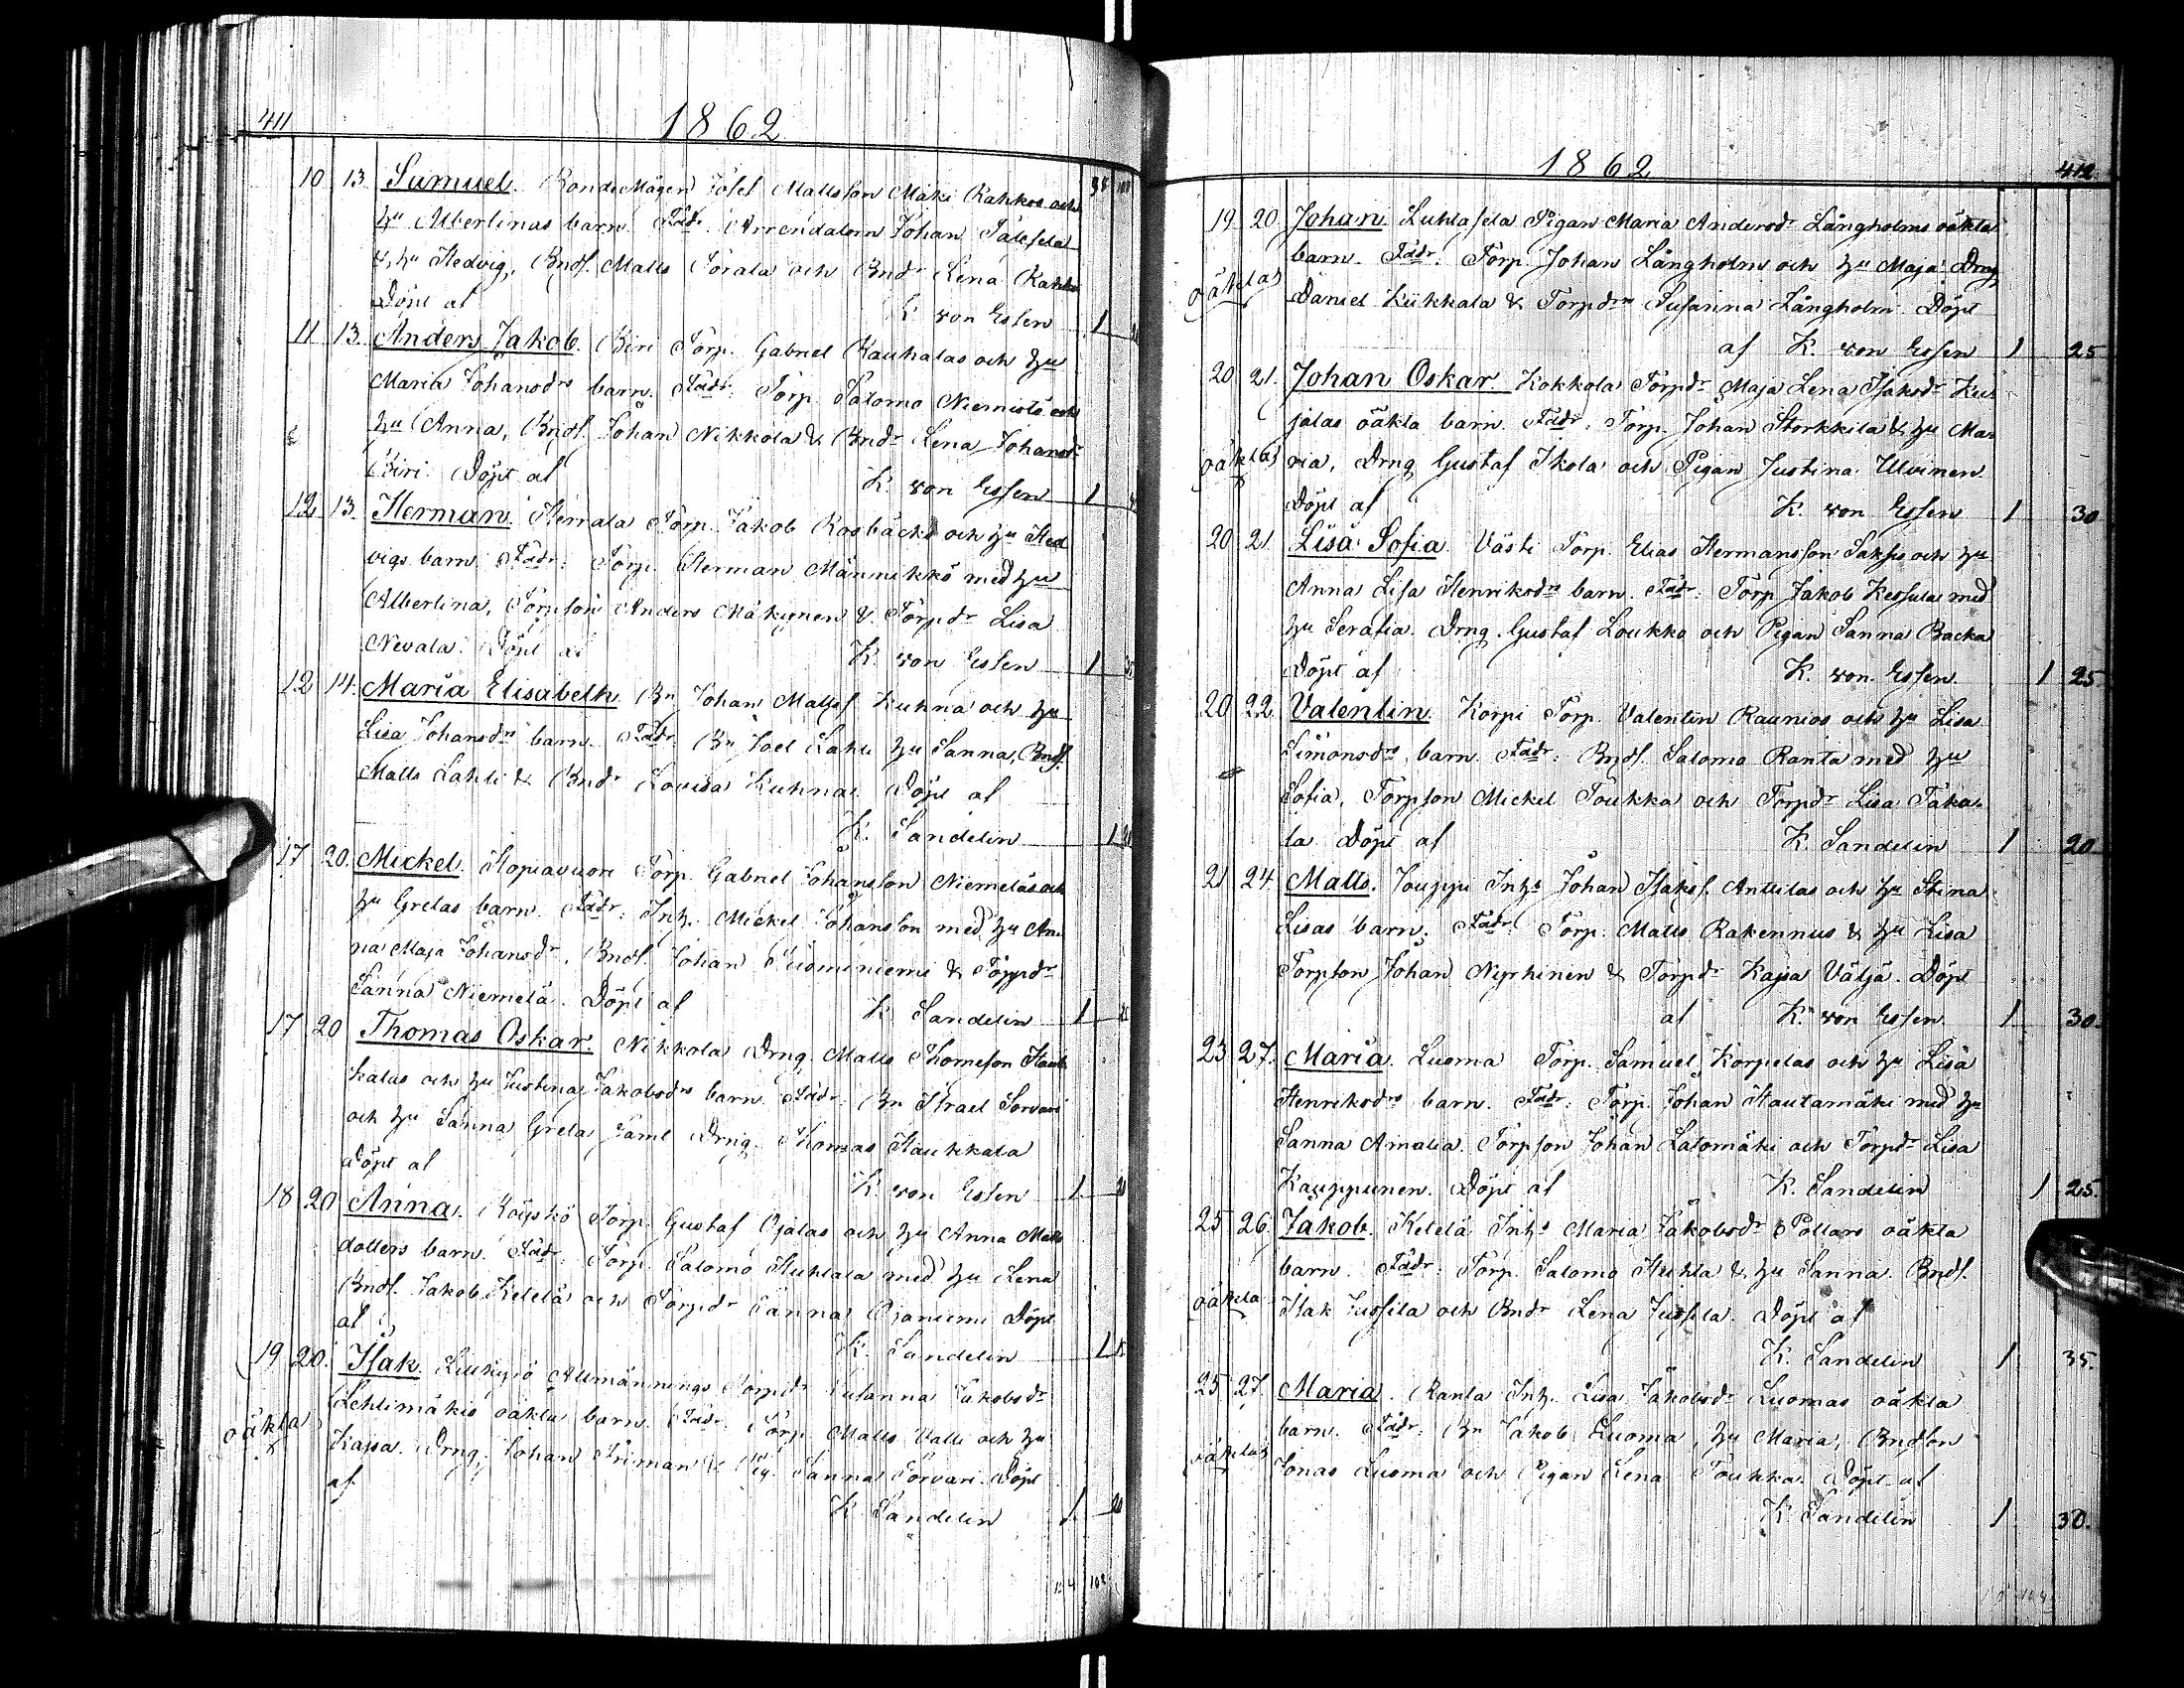 411
1862
10 13. Samuel. BondeMågen Josef Mattsson Mäki Rahkos och
hu Albertinas barn. Fadr. Arrendatorn Johan
& hu Hedvig, Bnds. Matts Sorala och Bndr Lena Rahko
Döpt af K. von Essen 1
11 13. Anders Jakob. Biri Torp. Gabriel Rauhalas och hu
Maria Johansdrs barn. Fadr: Torp. Salomo Niemistö och
hu Anna, Bnds. Johan Nikkola & Bndr Lena Johansdr
Biri. Döpt af K. von Essen 1
12 13. Herman. Herrala Torp. Jakob Rosbacks och hu Hed
vigs barn. Fadr: Torp. Herman Männikkö med hu
Albertina, Torpson Anders Mäkynen & Torpdr Lisa
Nevala. Döpt af K. von Essen 1
12 14. Maria Elisabeth. Bn Johan Mattss Kuhna och hu
Lisa Johansdrs barn. Fadr: Bn Joel Lahti hu Sanna, Bnds.
Matts Lahti & Bndr Lovisa Kuhna. Döpt af
K. Sandelin 1
17 20. Mickel. Hopiavuori Torp. Gabriel Johansson Niemeläs och
hu Gretas barn. Fadr: Inh. Mickel Johansson med hu An-
na Maja Johansdr, Bnds. Johan Suominiemi & Torpdr
Sanna Niemelä. Döpt af K. Sandelin 1
17 20 Thomas Oskar. Nikkola Drng Matts Thomeson Hauk
kalas och hu Justina Jakobsdrs barn. Fadr: Bn Israel Sorvari
och hu Sanna Greta samt Drng. Thomas Haukkala
Döpt af K. von Essen 1 20
18 20 Anna. Röyskö Torp. Gustaf Ojalas och hu Anna Matts
dotters barn. Fadr: Torp. Salomo Huhtala med hu Lena
Bnds. Jakob Keltelä och Torpdr Sanna Ojaniemi Döpt
af K. Sandelin 1
19 20. Isak. Luikyjö Allmännings Torpdr Susanna Jakobsdr
Lehtimäkis oäkta barn. Fadr: Torp. Matts Valli och hu
oäkta
Kajsa. Drng. Johan Friman & Pig. Sanna Sorvari. Döpt
af K. Sandelin 1 20
1862
412
19 20. Johan. Luhtasela Pigan Maria Andersdr Långholms oäkta
barn. Fadr: Torp. Johan Långholm och hu Maja. Drng
oäktas
Daniel Kiikkala & Torpdrn Susanna Långholm. Döpt
af K. von Essen 1 25
20 21. Johan Oskar. Kokkola Torpdr Maja Lena Isaksdr Kus
jalas oäkta barn. Fadr: Torp. Johan Storkkila & hu Ma-
oäktas
ria, Drng Gustaf Ikola och Pigan Justina Ulvinen.
Döpt af K. von Essen 1 30
20 21. Lisa Sofia. Västi Torp. Elias Hermansson Saksis och hu
Anna Lisa Henriksdrs barn. Fadr: Torp Jakob Kessula med
hu Serafia. Drng. Gustaf Loukko och Pigan Sanna Backa
Döpt af K. von Essen. 1 25.
20 22. Valentin. Korpi Torp. Valentin Raunios och hu Lisa
Simonsdrs barn. Fadr: Bnds. Salomo Ranta med hu
Sofia, Torpson Mickel Toukka och Torpdr Lisa Taka-
la Döpt af K. Sandelin 1 20
21 24. Matts. Jouppi Inhs Johan Isakss. Anttilas och hu Stina
Lisas barn. Fadr: Torp. Matts Rakennus & hu Lisa
Torpson Johan Nyrhinen & Torpdr Kajsa Väljä. Döpt
af K. von Essen 1 30.
23 27. Maria. Luoma Torp. Samuel Korpelas och hu Lisa
Henriksdrs barn. Fadr: Torp. Johan Hautamäki med hu
Sanna Amalia. Torpson Johan Latomäki och Torpdr Lisa
Kauppinen. Döpt af K. Sandelin 1 25.
25 26. Jakob. Keltelä Inhs Maria Jakobsdr Pollars oäkta
barn. Fadr: Torp. Salomo Huhta & hu Sanna. Bnds.
oäkta
Isak Jussila och Bndr Lena Jussila. Döpt af
K. Sandelin 1 35.
25 27. Maria. Ranta Inh. Lisa Jakobsdr Luomas oäkta
barn. Fadr: Bn Jakob Luoma, hu Maria, Bndson
oäktas
Jonas Luoma och Pigan Lena Toukka. Döpt af
K. Sandelin 1 30.